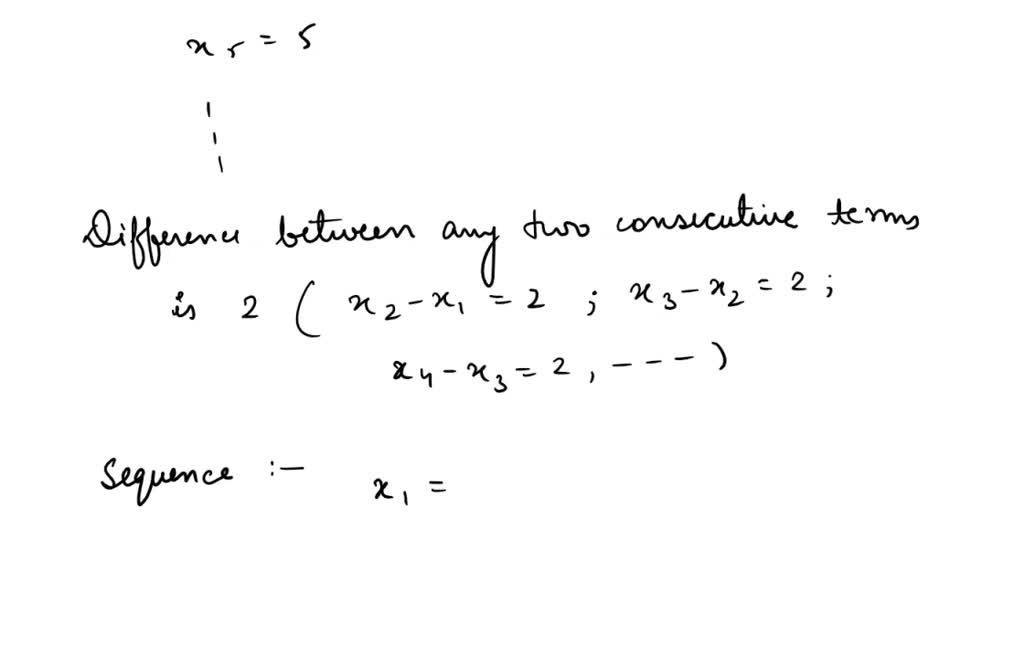 x₅ = 5
Difference between any two consecutive terms
is 2 ( x₂ - x₁ = 2 ; x₃ - x₂ = 2 ;
x₄ - x₃ = 2 , - - - )
Sequence :- x₁ =